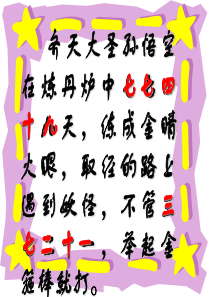 齐天大圣孙悟空
在炼丹炉中七七四
十九天，练成金睛
火眼，取经的路上
遇到妖怪，不管三
七二十一，举起金
箍棒就打。